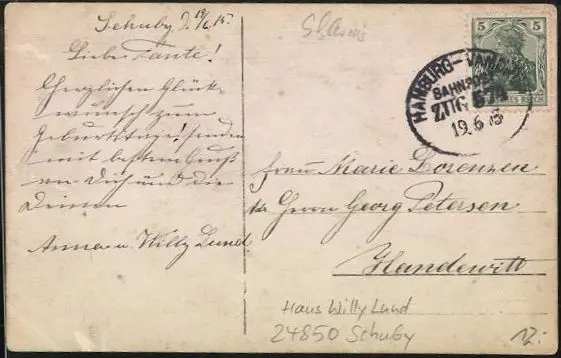 Schuby d. 19/6. 15.
Liebe Tante!
Herzlichen Glück-
wunsch zum
Geburtstage! senden
mit bestem Gruß
an Dich und die
Deinen
Anna u. Willy Lund
5
HAMBURG-
BAHNPOST
ZUG
19.6.15
ES REICH
Frau Marie Lorenzen
Herrn Georg Petersen
Handewitt
Haus Willy Lund
24850 Schuby
12.-